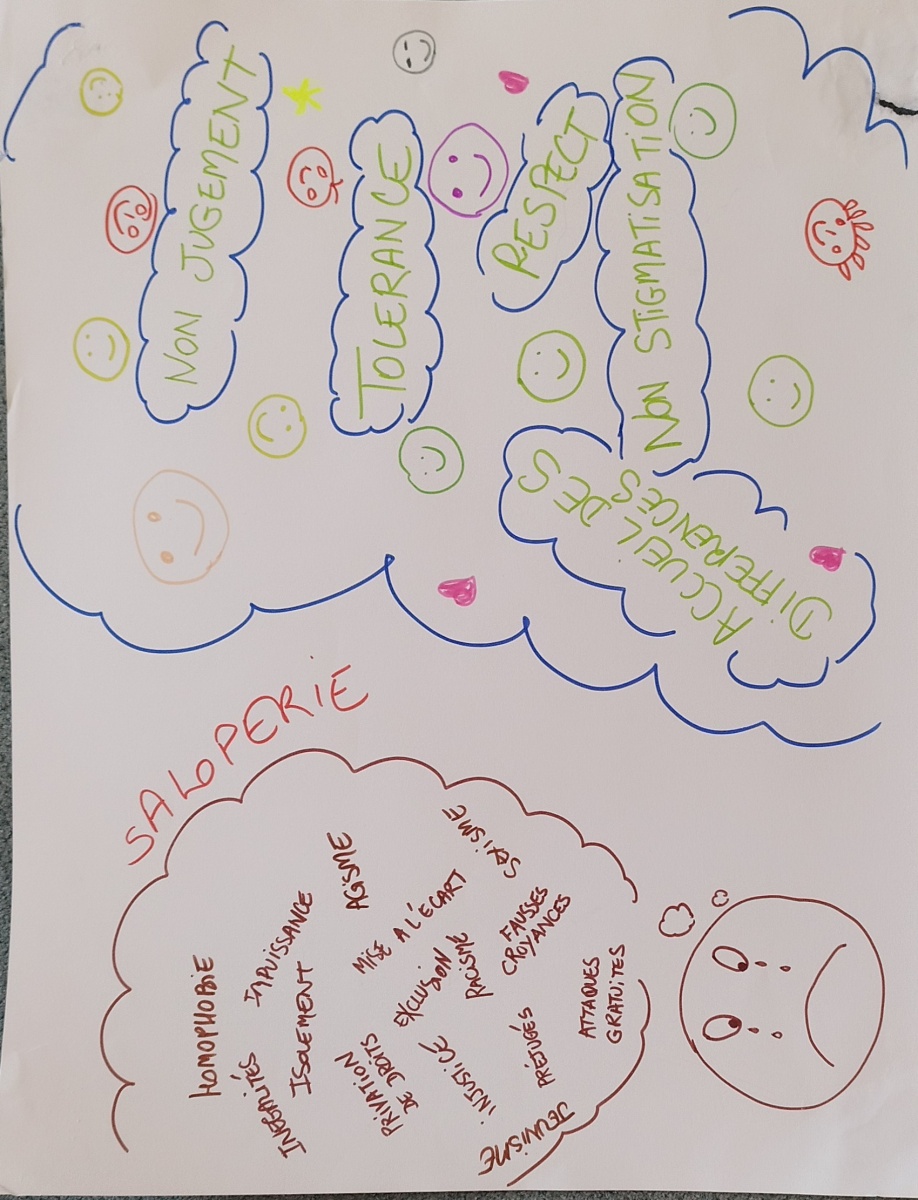 SALOPERIE
HOMOPHOBIE
INEGALITÉS
IMPUISSANCE
ISOLEMENT
AGiSME
MiSE A L'ÉCART
PRIVATION
DE DROITS
EXCLUSION
RACISME
SEXISME
iNJUSTICE
FAUSSES
CROYANCES
PRÉJUGÉS
ATTAQUES
GRATUITES
JEUNISME
NON JUGEMENT
TOLERANCE
RESPECT
NON STIGMATISATION
ACCUEIL DES
DIFFERENCES